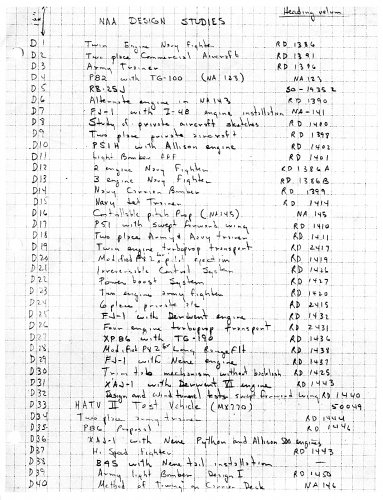 Heading volum
NAA DESIGN STUDIES
D1 Twin Engine Navy Fighter RD 1386
D2 Two place Commercial Aircraft RD 1391
D3 Army Trainer RD 1396
D4 PB2 with TG-100 (NA123) NA123
D5 RB-25J
D6 Alternate engine in NA143 RD 1390
D7 FJ-1 with I-48 engine installation NA-141
D8 Study of private aircraft sketches RD 1400
D9 Two place private aircraft RD 1398
D10 P51H with Allison engine RD 1402
D11 Light Bomber AAF RD 1401
D12 2 engine Navy Fighter RD 1386A
D13 3 engine Navy Fighter RD 1386B
D14 Navy Carrier Bomber RD 1399
D15 Navy Jet Trainer RD 1414
D16 Controllable pitch Prop (NA145) NA 145
D17 P51 with swept forward wing RD 1410
D18 Two place Army & Navy trainer RD 1411
D19 Twin engine turboprop transport RD 2417
D20 Modified pilot ejection RD 1419
D21 Irreversible Control System RD 1426
D22 Power boost System RD 1427
D23 Two engine army fighter RD 1420
D24 6 place private a/c RD 2415
D25 FJ-1 with Derwent engine RD 1432
D26 Four engine turboprop transport RD 2431
D27 XPB6 with TG-190 RD 1436
D28 Modified PV2 Long Range Flt RD 1438
D29 FJ-1 with Nene engine RD 1437
D30 Trim tab mechanism without backlash RD 1425
D31 XAJ-1 with Derwent VI engine RD 1443
D32 Design and windtunnel tests swept forward wing RD 1440
D33 HATV II Test Vehicle (MX770) 50049
D34 Two place army trainer RD 1444
D35 PB6 Proposal RD 1446
D36 XAJ-1 with Nene Python and Allison 500 engines
D37 Hi Speed Fighter RD 1443
D38 B45 with Nene tail installation —
D39 Army light Bomber Design I RD 1450
D40 Method of Turning on Carrier Deck NA 146